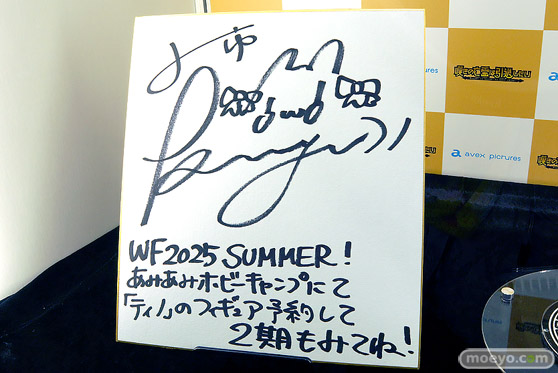 WF2025 SUMMER!
あみあみホビーキャンプにて
「ティノ」のフィギュア予約して
2期もみてね!
avex pictures
avex pictures
moeyo.com